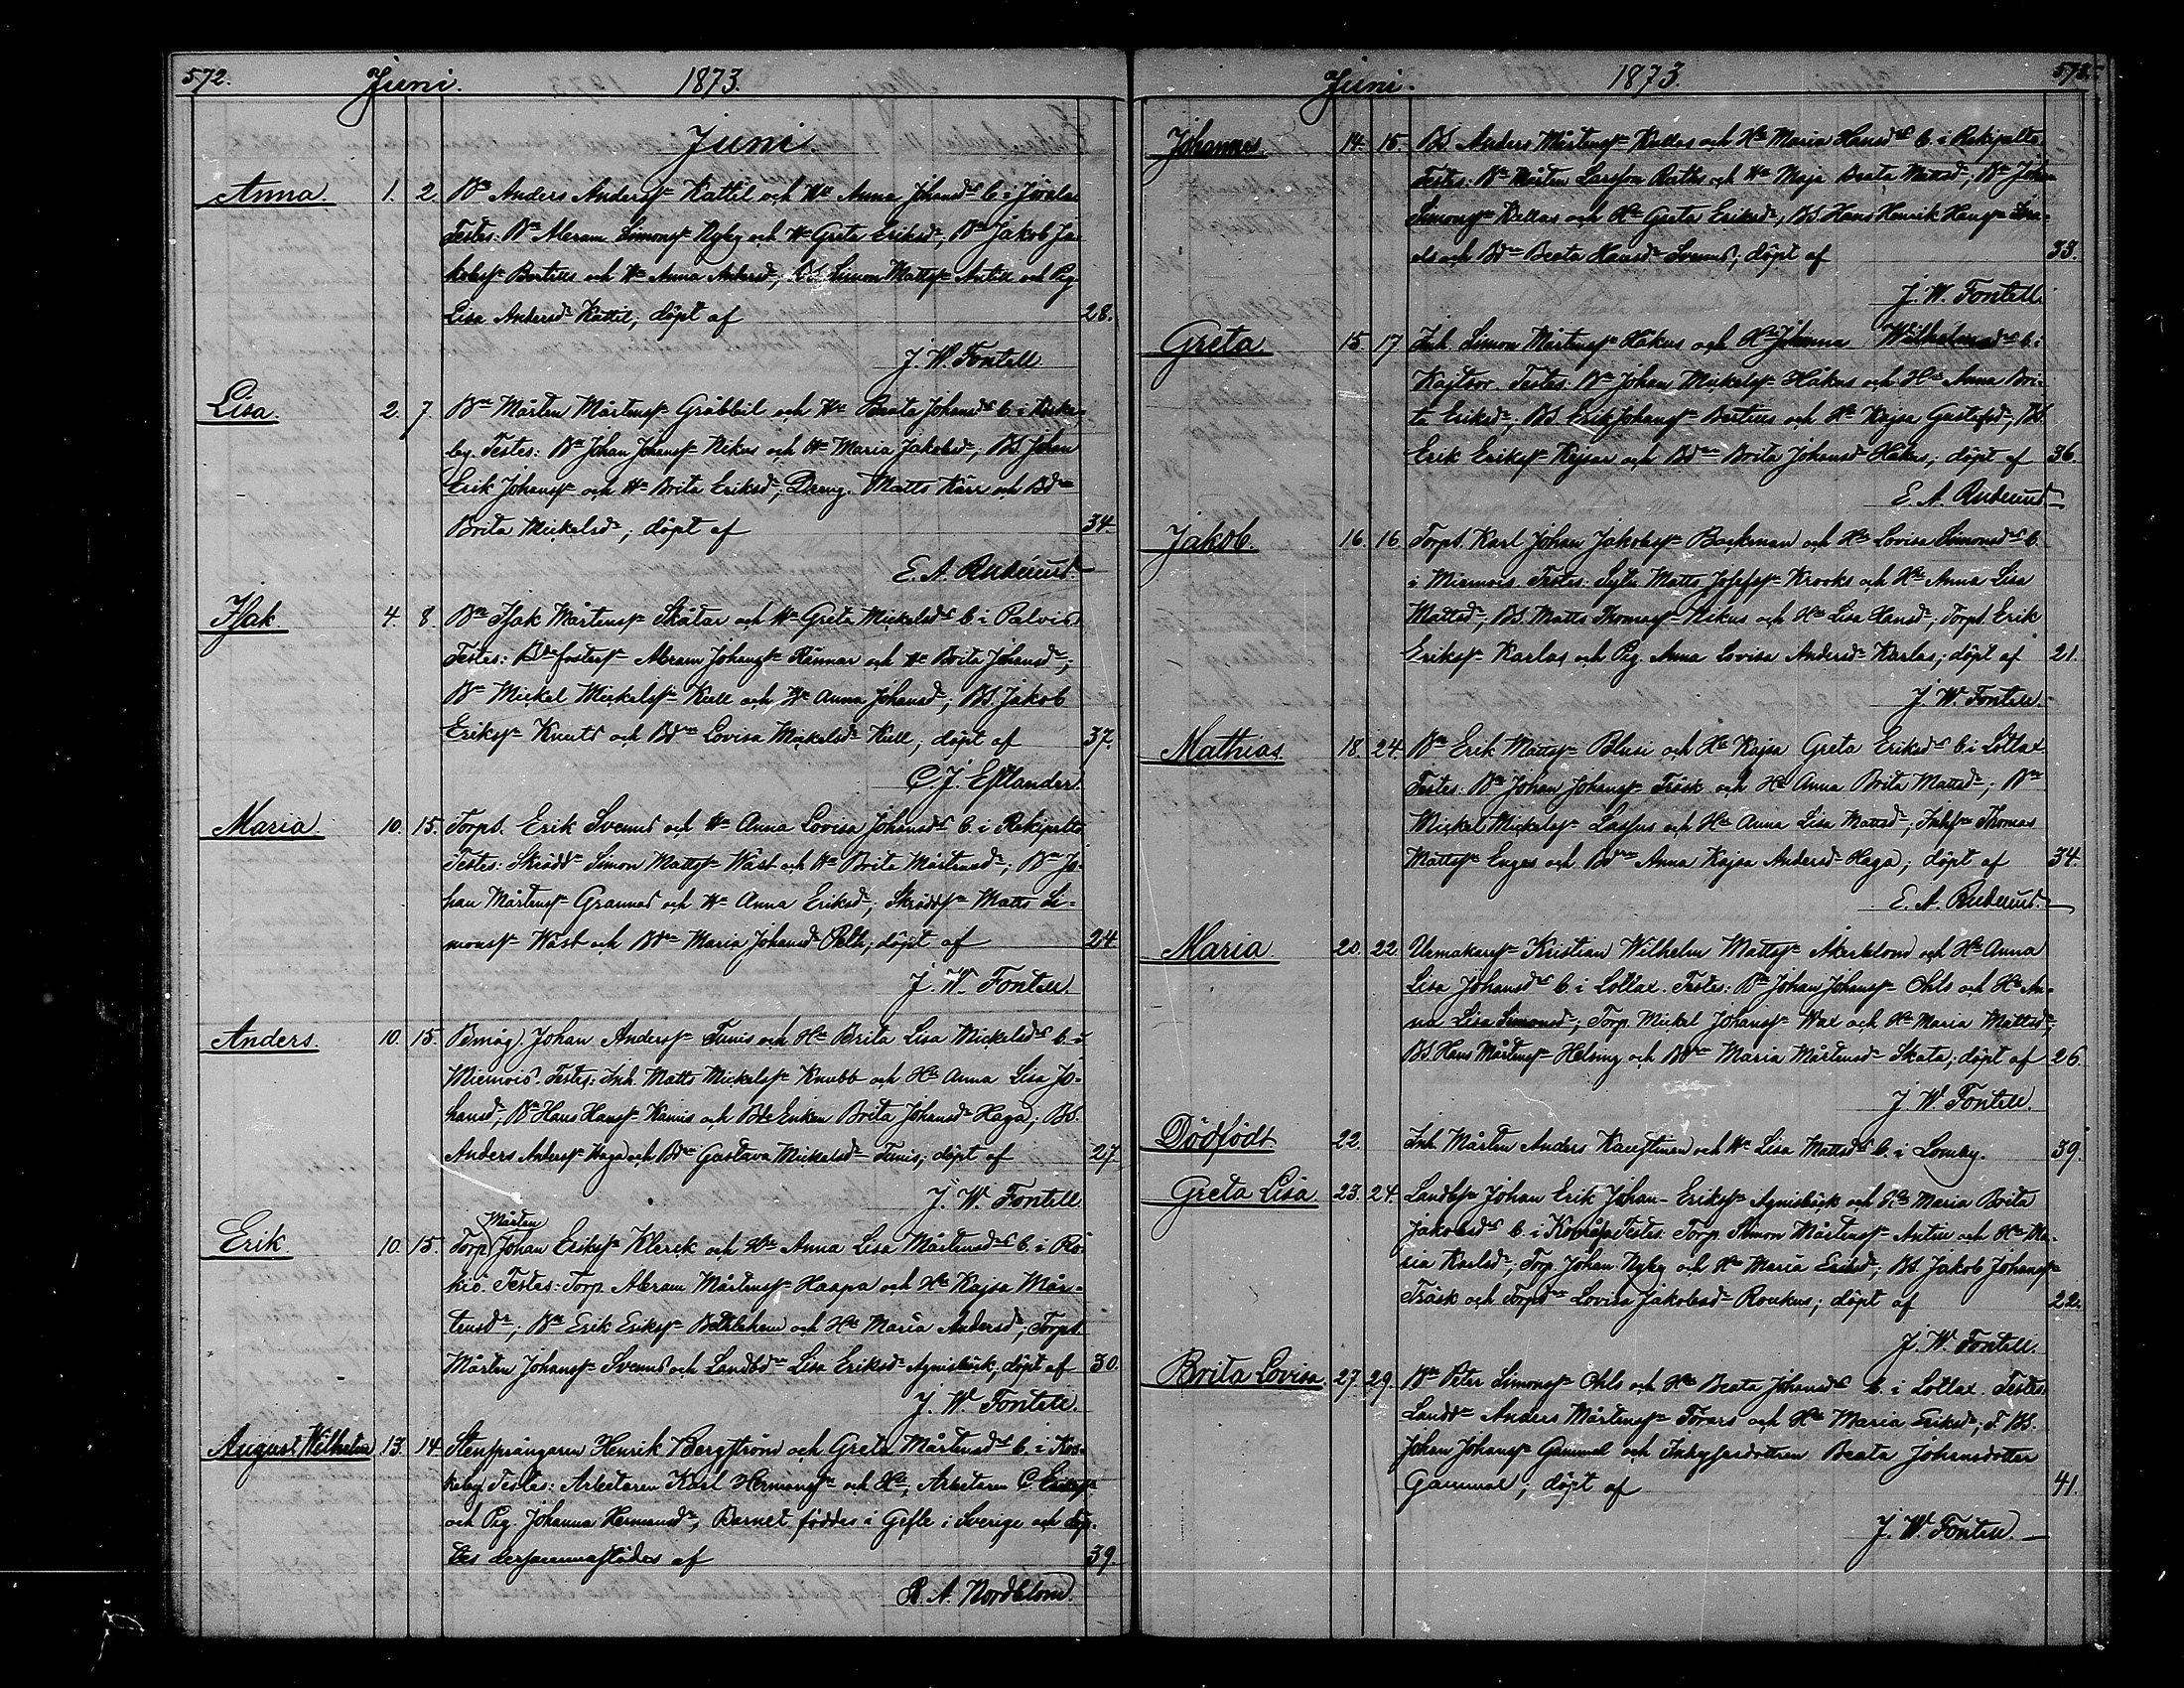 572. Juni. 1873.
Juni.
Anna. 1. 2. Bn Anders Anderssn Kattil och Hn Anna Johansdr b. i Jivala
Testes: Bn Abram Simonssn Nyby och Hn Greta Eriksdr, Bn Jakob Ja-
kobssn Bertills och Hn Anna Andersd; BS. Simon Mattssn Antill och Pig.
Lisa Andersdr Kattil, döpt af 28.
J. W. Fontell
Lisa. 2. 7. Bn Mårten Mårtenssn Gråbbil och Hn Beata Johansdr b. i Koske-
by. Testes: Bn Johan Johanssn Nikus och Hn Maria Jakobsdr; BS. Johan
Erik Johanssn och Hn Brita Eriksdr; Dreng. Matts Kärr och Bdr
Brita Mickelsdr; döpt af 34.
E. A. Rudlund.
Isak. 4. 8. Bn Isak Mårtenssn Skåtar och Hn Greta Mickelsdr b. i Palvis
Testes: Bdefosterssn Abram Johanssn Rännar och Hn Brita Johansdr;
Bn Mickel Mickelssn Kull och Hn Anna Johansd; BS. Jakob
Erikssn Knuts och Bdr Lovisa Mickelsdr Kull; döpt af 37.
C. J. Estlander.
Maria 10. 15. Torps. Erik Svenns och Hn Anna Lovisa Johansdr b. i Rekipelto
Testes: Skrädd Simon Mattssn Wäst och Hn Brita Mårtensdr; Bn Jo-
han Mårtenssn Grannas och Hn Anna Eriksdr; Skräddssn Matts Si-
monssn Wäst och Bdr Maria Johansdr Pelth; döpt af 24
J. W. Fontell.
Anders. 10. 15. Bmåg. Johan Anderssn Tunis och Hn Brita Lisa Mickelsdr b. i
Miemois. Testes: Inh. Matts Mickelssn Knubb och Hn Anna Lisa Jo-
hansd; Bn Hans Hanssn Kamis och Bde Enkan Brita Johansdr Haga; BS.
Anders Anderssn Haga och Bdr Gustava Mickelsdr Tunis; döpt af 27.
J. W. Fontell
Erik. 10. 15. Torp. Mårten Johan Erikssn Klerck och Hn Anna Lisa Mårtensdr b. i Rö-
kiö. Testes: Torp Abram Mårtenssn Haapa och Hn Kajsa Mår-
tensdr; Bn Erik Erikssn Bethlehem och Hn Maria Andersd; Torps.
Mårten Johanssn Svenns och Landbdr Lisa Eriksdr Agnisbäck, döpt af 30.
J. W. Fontell.
August Wilhelm 13. 14. Stensprängaren Henrik Bergström och Greta Mårtensdr b. i Kos-
keby. Testes: Arbetaren Karl Hermanssn och Hn, Arbetaren C. Erikssn
och Pig. Johanna Hermansdr, Barnet föddes i Gefle i Sverige och döp-
tes dersammastädes af 39.
R. A. Nordblom.
Juni. 1873. 573.
Johannes. 14. 15. BS. Anders Mårtenssn Kullas och Hn Maria Hansdr b. i Rekipelto
Testes: Bn Mårten Larsson Raths och Hn Maja Beata Mattsd; Bn Johan
Simonssn Kullas och Hn Greta Eriksdr; BS. Hans Henrik Hanssn Isra-
els och Bdr Beata Hansdr Svenns; döpt af 33.
J. W. Fontell
Greta. 15 17 Inh. Simon Mårtenssn Håkus och Hn Johanna Wilhelmsdr b. i
Kajtsor. Testes: Bn Johan Mickelssn Håkus och Hn Anna Bri-
ta Eriksdr; BS. Erik Johanssn Bertills och Hn Kajsa Gustafsdr; BS.
Erik Erikssn Kejsar och Bdr Brita Johansdr Håkus; döpt af 36.
E. A. Rudlund
Jakob. 16. 16. Torps. Karl Johan Jakobssn Backman och Hn Lovisa Simonsdr b.
i Miemois. Testes: Sytn. Matts Josefssn Krooks och Hn Anna Lisa
Mattsd; BS. Matts Thomassn Nikus och Hn Lisa Hansd; Torps. Erik
Erikssn Karlas och Pig. Anna Lovisa Andersdr Karlas; döpt af 21.
J. W. Fontell.
Mathias. 18. 24. Bn Erik Mattssn Blusi och Hn Kajsa Greta Eriksdr b. i Lotlax
Testes: Bn Johan Johanssn Träsk och Hn Anna Brita Mattsdr; Bn
Mickel Mickelssn Lassus och Hn Anna Lisa Mattsd; Inhssn Thomas
Mattssn Enges och Bdr Anna Kajsa Andersdr Haga; döpt af 34.
E. A. Rudlund.
Maria. 20. 22. Urmakaressn Kristian Wilhelm Mattssn Åkerblom och Hn Anna
Lisa Johansdr b. i Lotlax. Testes: Bn Johan Johanssn Ohls och Hn An-
na Lisa Simonsd; Torp. Mickel Johanssn Wax och Hn Maria Mattsdr;
BS. Hans Mårtenssn Helsing och Bdr Maria Mårtensdr Skata; döpt af 26.
J. W. Fontell.
Dödfödt 22. Inh. Mårten Anders Kaustinen och Hn Lisa Mattsdr b. i Lomby. 39.
Greta Lisa. 23. 24. Landbssn Johan Erik Johan-Erikssn Agnisbäck och Hn Maria Brita
Jakobsdr b. i Komåsa Testes: Torp. Simon Mårtenssn Antill och Hn Ma-
ria Karlsd; Torp. Johan Nyby och Hn Maria Eriksd; BS. Jakob Johanssn
Träsk och Torpdr Lovisa Jakobsdr Roukus; döpt af 22.
J. W. Fontell.
Brita Lovisa. 27. 29. Bn Peter Simonssn Ohls och Hn Beata Johansdr b. i Lotlax. Testes:
Landb Anders Mårtenssn Torars och Hn Maria Eriksd; F. BS.
Johan Johanssn Gammal och Inhysesdottren Beata Johansdotter
Gammal; döpt af 41.
J. W. Fontell.